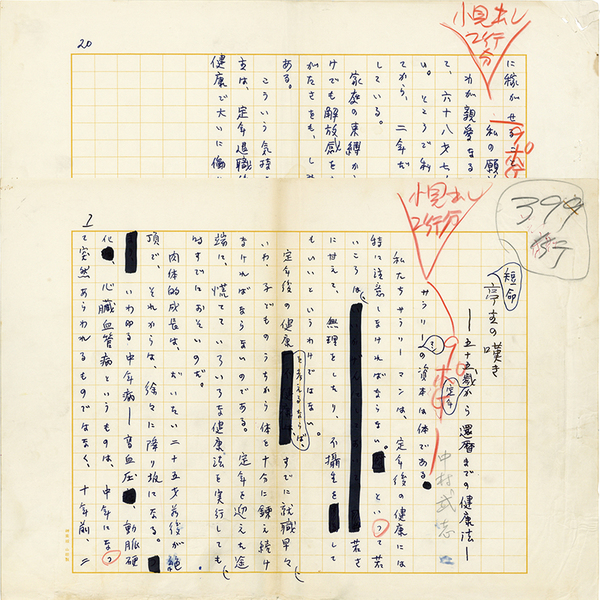 20
小見出し
2行分
に嫁がせること
私の願
わが親愛なる
て、六十八才七
い。ところで私
てから、二年だ
している。
家庭の束縛か
けでも解放感を
がたさをも、し
ある。
こういう気持
は、定年退職
健康で大いに働
1
小見出し
2行分
399
行
短命
亭主の嘆き
―五十五歳から還暦までの健康法―
定年
中村武志
サラリーマンの資本は体である
私たちサラリーマンは、定年後の健康には
特に注意しなければならない。といって若
いころは、若さ
に甘えて、無理をしたり、不摂生をして
もいいというわけではない。
定年後の健康を考えるならば、すでに就職早々
いわゆ子でものうちから体を十分に鍛え続け
なければならないのである。定年を迎えた途
端に、慌てていろいろな健康法を実行しても、
時すでにおそいのだ。
肉体的成長は、だいたい二十五才前後が絶
頂で、それからは、徐々に降り坂になる。
いわゆる中年病―高血圧、動脈硬
化、心臓血管病というものは、中年になっ
て突然あらわれるものではなく、十年前、二